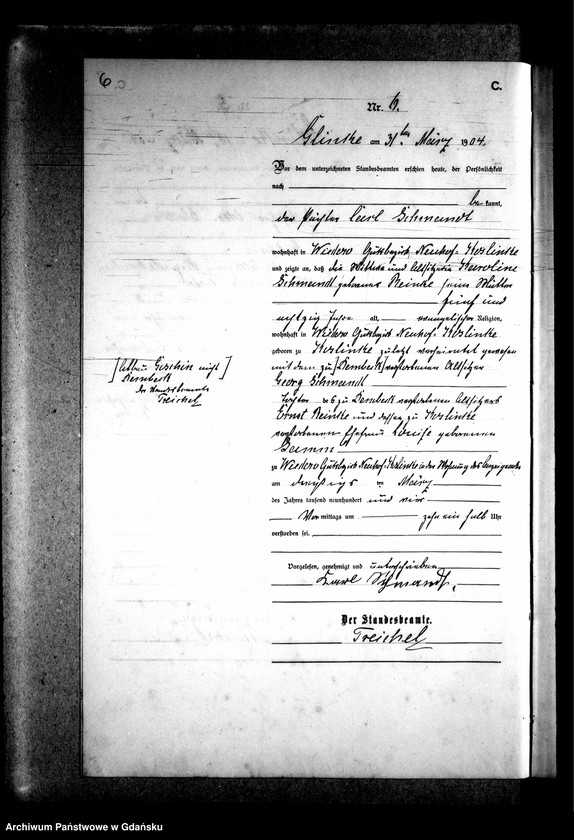 6
C.
Nr. 6.
Glinke am 31ten März 1904.
Vor dem unterzeichneten Standesbeamten erschien heute, der Persönlichkeit
nach
bekannt,
der Pächter Carl Schmandt
wohnhaft in Gutsbezirk Neuhof-
und zeigte an, daß die Wittwe und Altsitzerin Karoline
Schmandt geborene Reinke seine Mutter
fünf und
achtzig Jahre alt, evangelischer Religion,
wohnhaft in Gutsbezirk Neuhof-
geboren zu zuletzt verheiratet gewesen
mit dem zu [Dembeck] verstorbenen Altsitzer
Georg Schmandt
Tochter des zu Dembeck verstorbenen Altsitzers
Ernst Reinke und dessen zu
verstorbenen Ehefrau Louise geborenen
zu Gutsbezirk Neuhof- in der Wohnung des Anzeigenden
am dreißigsten März
des Jahres tausend neunhundert und vier
Vormittags um zehn ein halb Uhr
verstorben sei.
[ nicht ]
Dembeck
der Standesbeamte
Treichel
Vorgelesen, genehmigt und unterschrieben
Karl Schmandt.
Der Standesbeamte.
Treichel
Archiwum Państwowe w Gdańsku